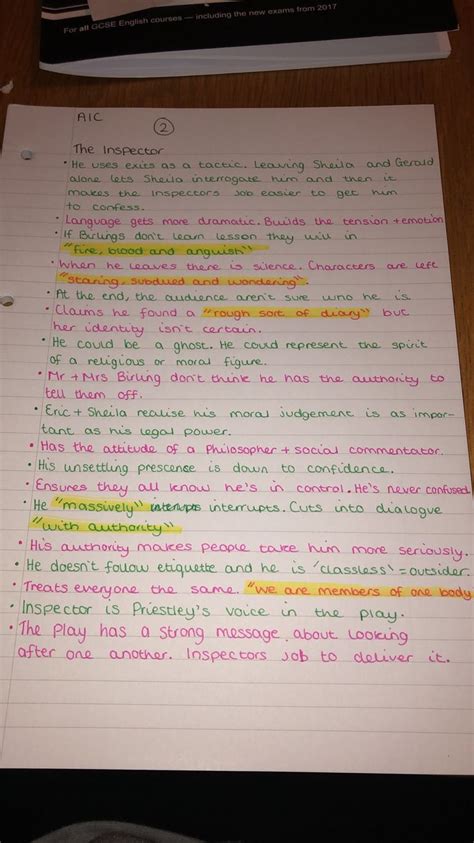 For all GCSE English courses — including the new exams from 2017
AIC
2
The Inspector
• He uses exits as a tactic. Leaving Sheila and Gerald
alone lets Sheila interrogate him and then it
makes the Inspectors job easier to get him
to confess.
• Language gets more dramatic. Builds the tension + emotion
• If Birlings don't learn lesson they will in
"fire, blood and anguish"
• When he leaves there is silence. Characters are left
"staring, subdued and wondering".
• At the end, the audience aren't sure who he is.
• Claims he found a "rough sort of diary" but
her identity isn't certain.
• He could be a ghost. He could represent the spirit
of a religious or moral figure.
• Mr + Mrs Birling don't think he has the authority to
tell them off.
• Eric + Sheila realise his moral judgement is as impor-
tant as his legal power.
• Has the attitude of a Philosopher + social commentator.
• His unsettling prescense is down to confidence.
• Ensures they all know he's in control. He's never confused
• He "massively" interrupts. Cuts into dialogue
"with authority"
• His authority makes people take him more seriously.
• He doesn't follow etiquette and he is 'classless' = outsider.
• Treats everyone the same. "We are members of one body
• Inspector is Priestley's voice in the play.
• The Play has a strong message about looking
after one another. Inspectors job to deliver it.